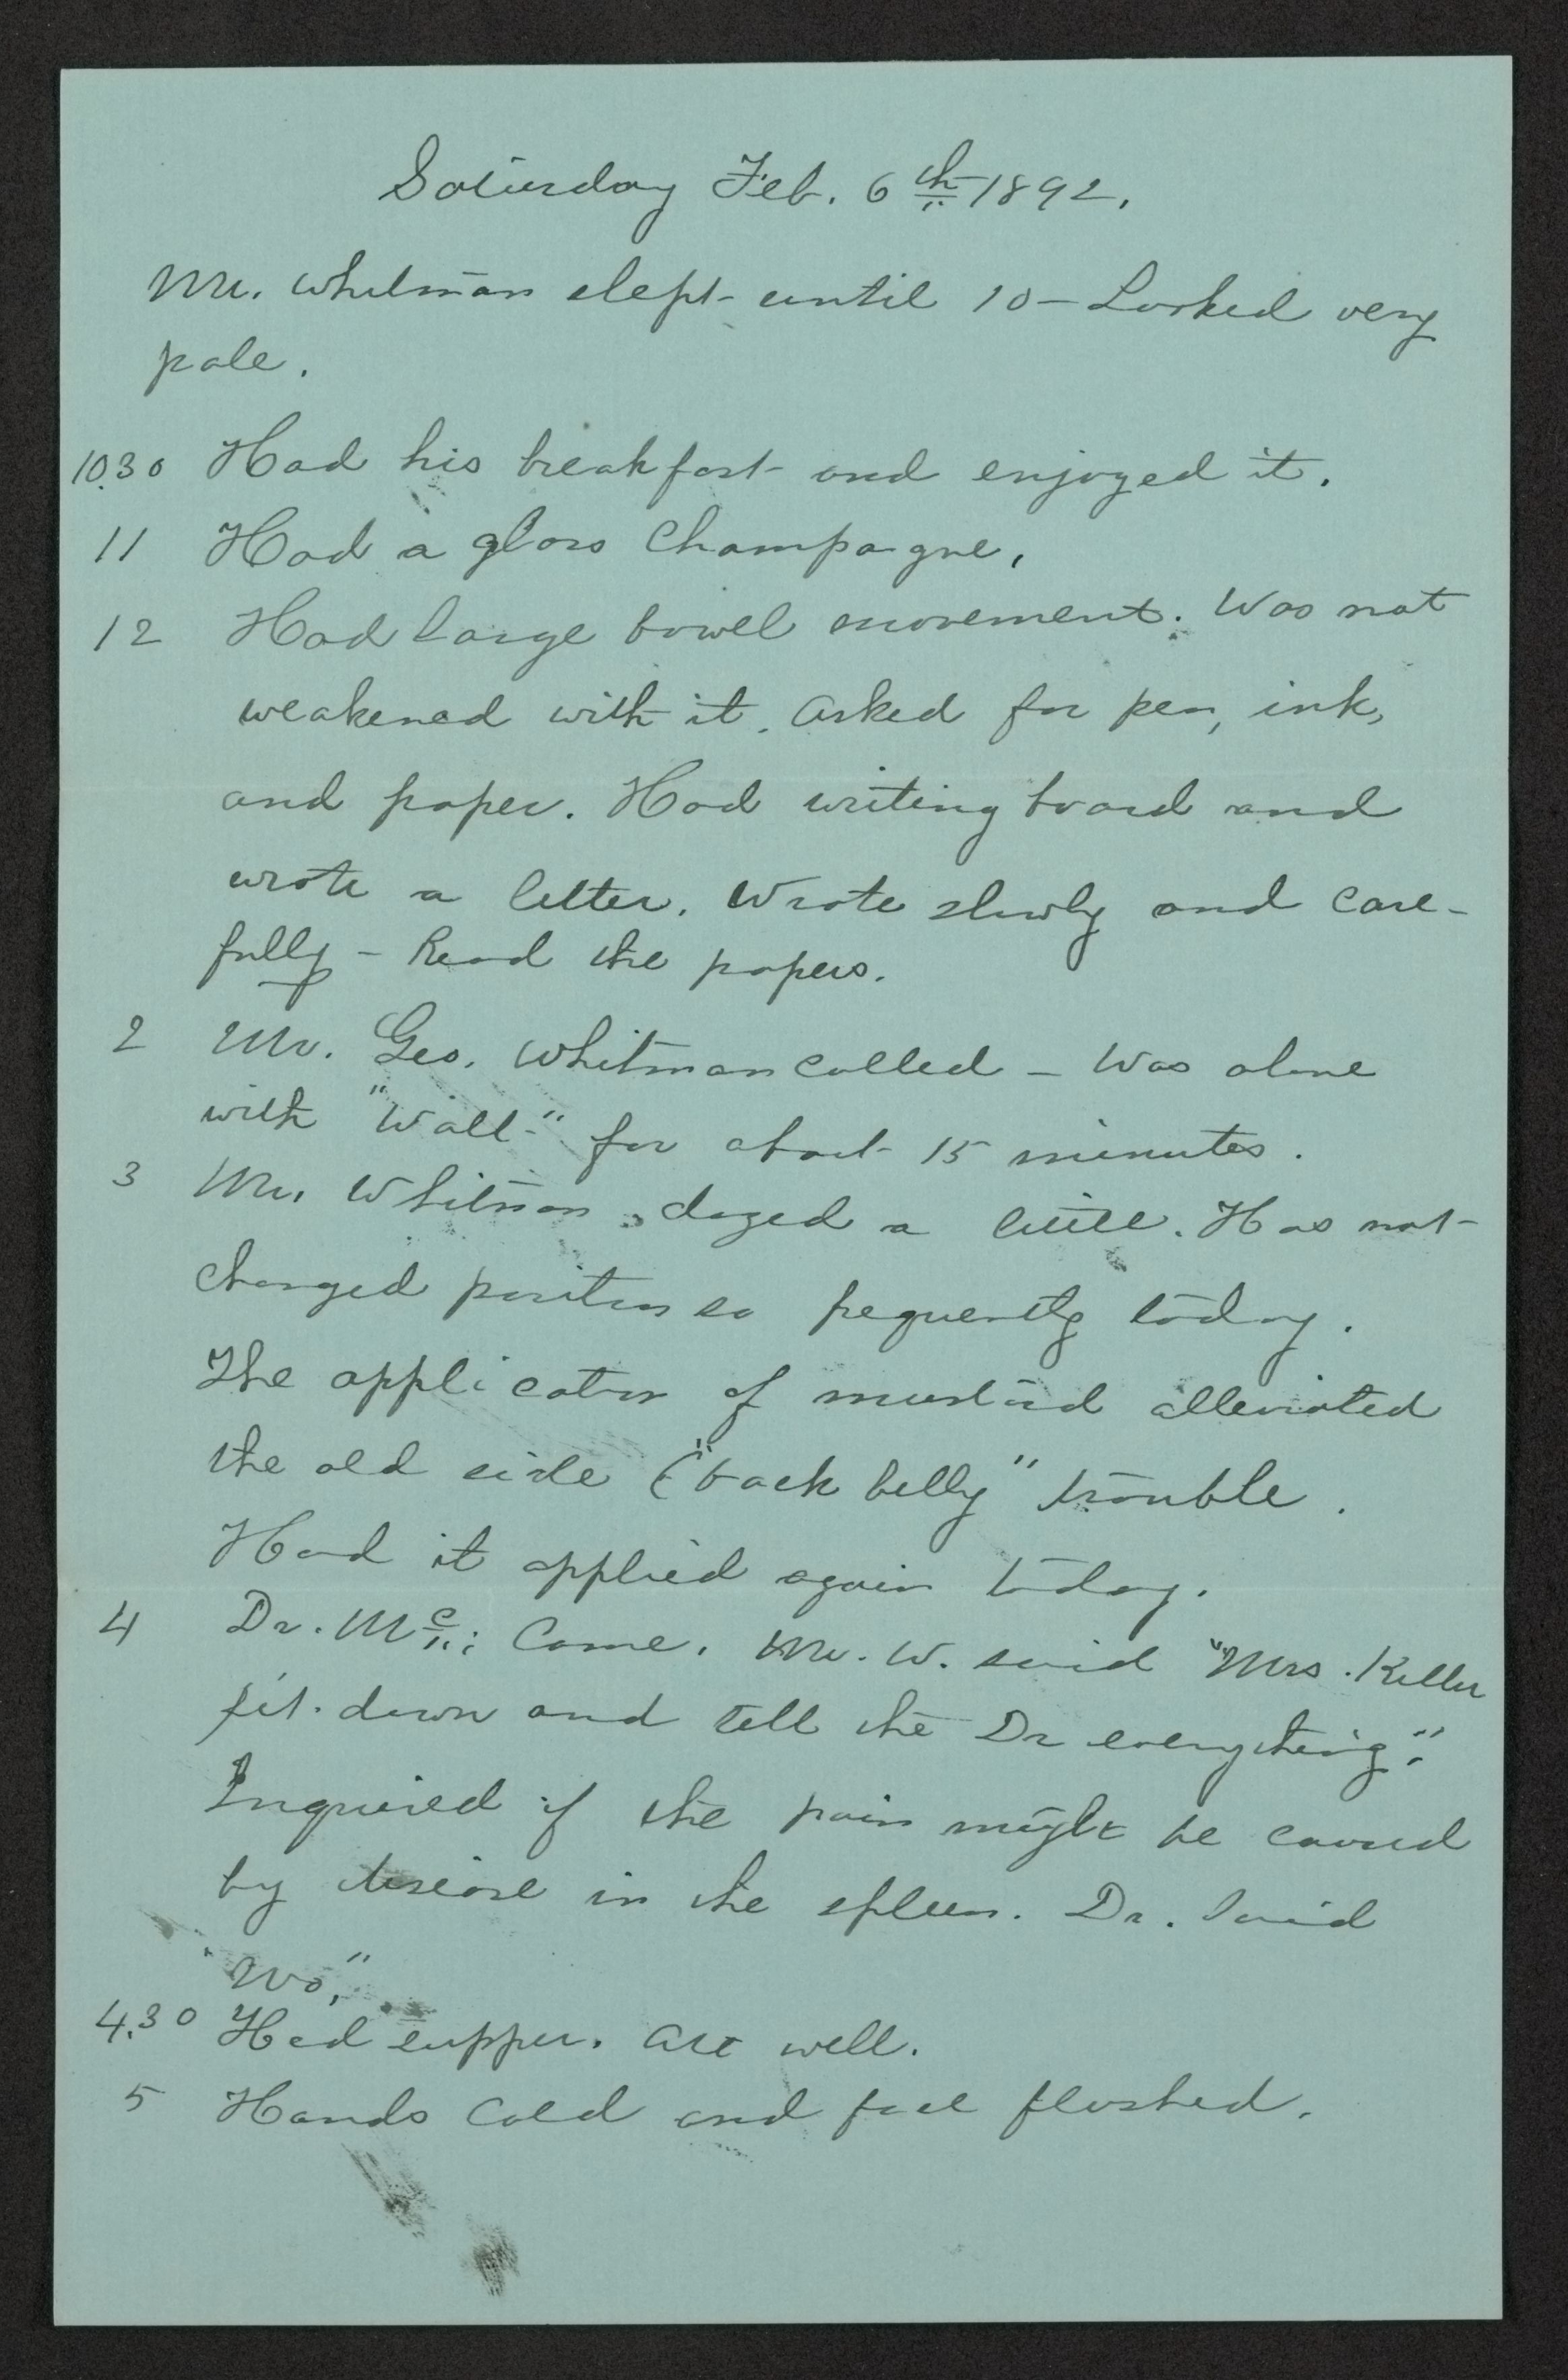 Saturday Feb. 6th 1892.
Mr. Whitman slept until 10 – Looked very
pale.
10.30 Had his breakfast and enjoyed it.
11 Had a glass Champagne.
12 Had large bowel movement. Was not
weakened with it. Asked for pen, ink,
and paper. Had writing board and
wrote a letter. Wrote slowly and care-
fully – Read the papers.
2 Mr. Geo. Whitman called – Was alone
with "Walt" for about 15 minutes.
3 Mr. Whitman dozed a little. Has not
changed position so frequently today.
The application of mustard alleviated
the old side ("back belly" trouble.
Had it applied again today.
4 Dr. Mc: Came. Mr. W. said "Mrs. Keller
sit down and tell the Dr everything".
Inquired if the pain might be caused
by disease in the spleen. Dr. Said
"No."
4.30 Had supper. Ate well.
5 Hands Cold and face flushed.